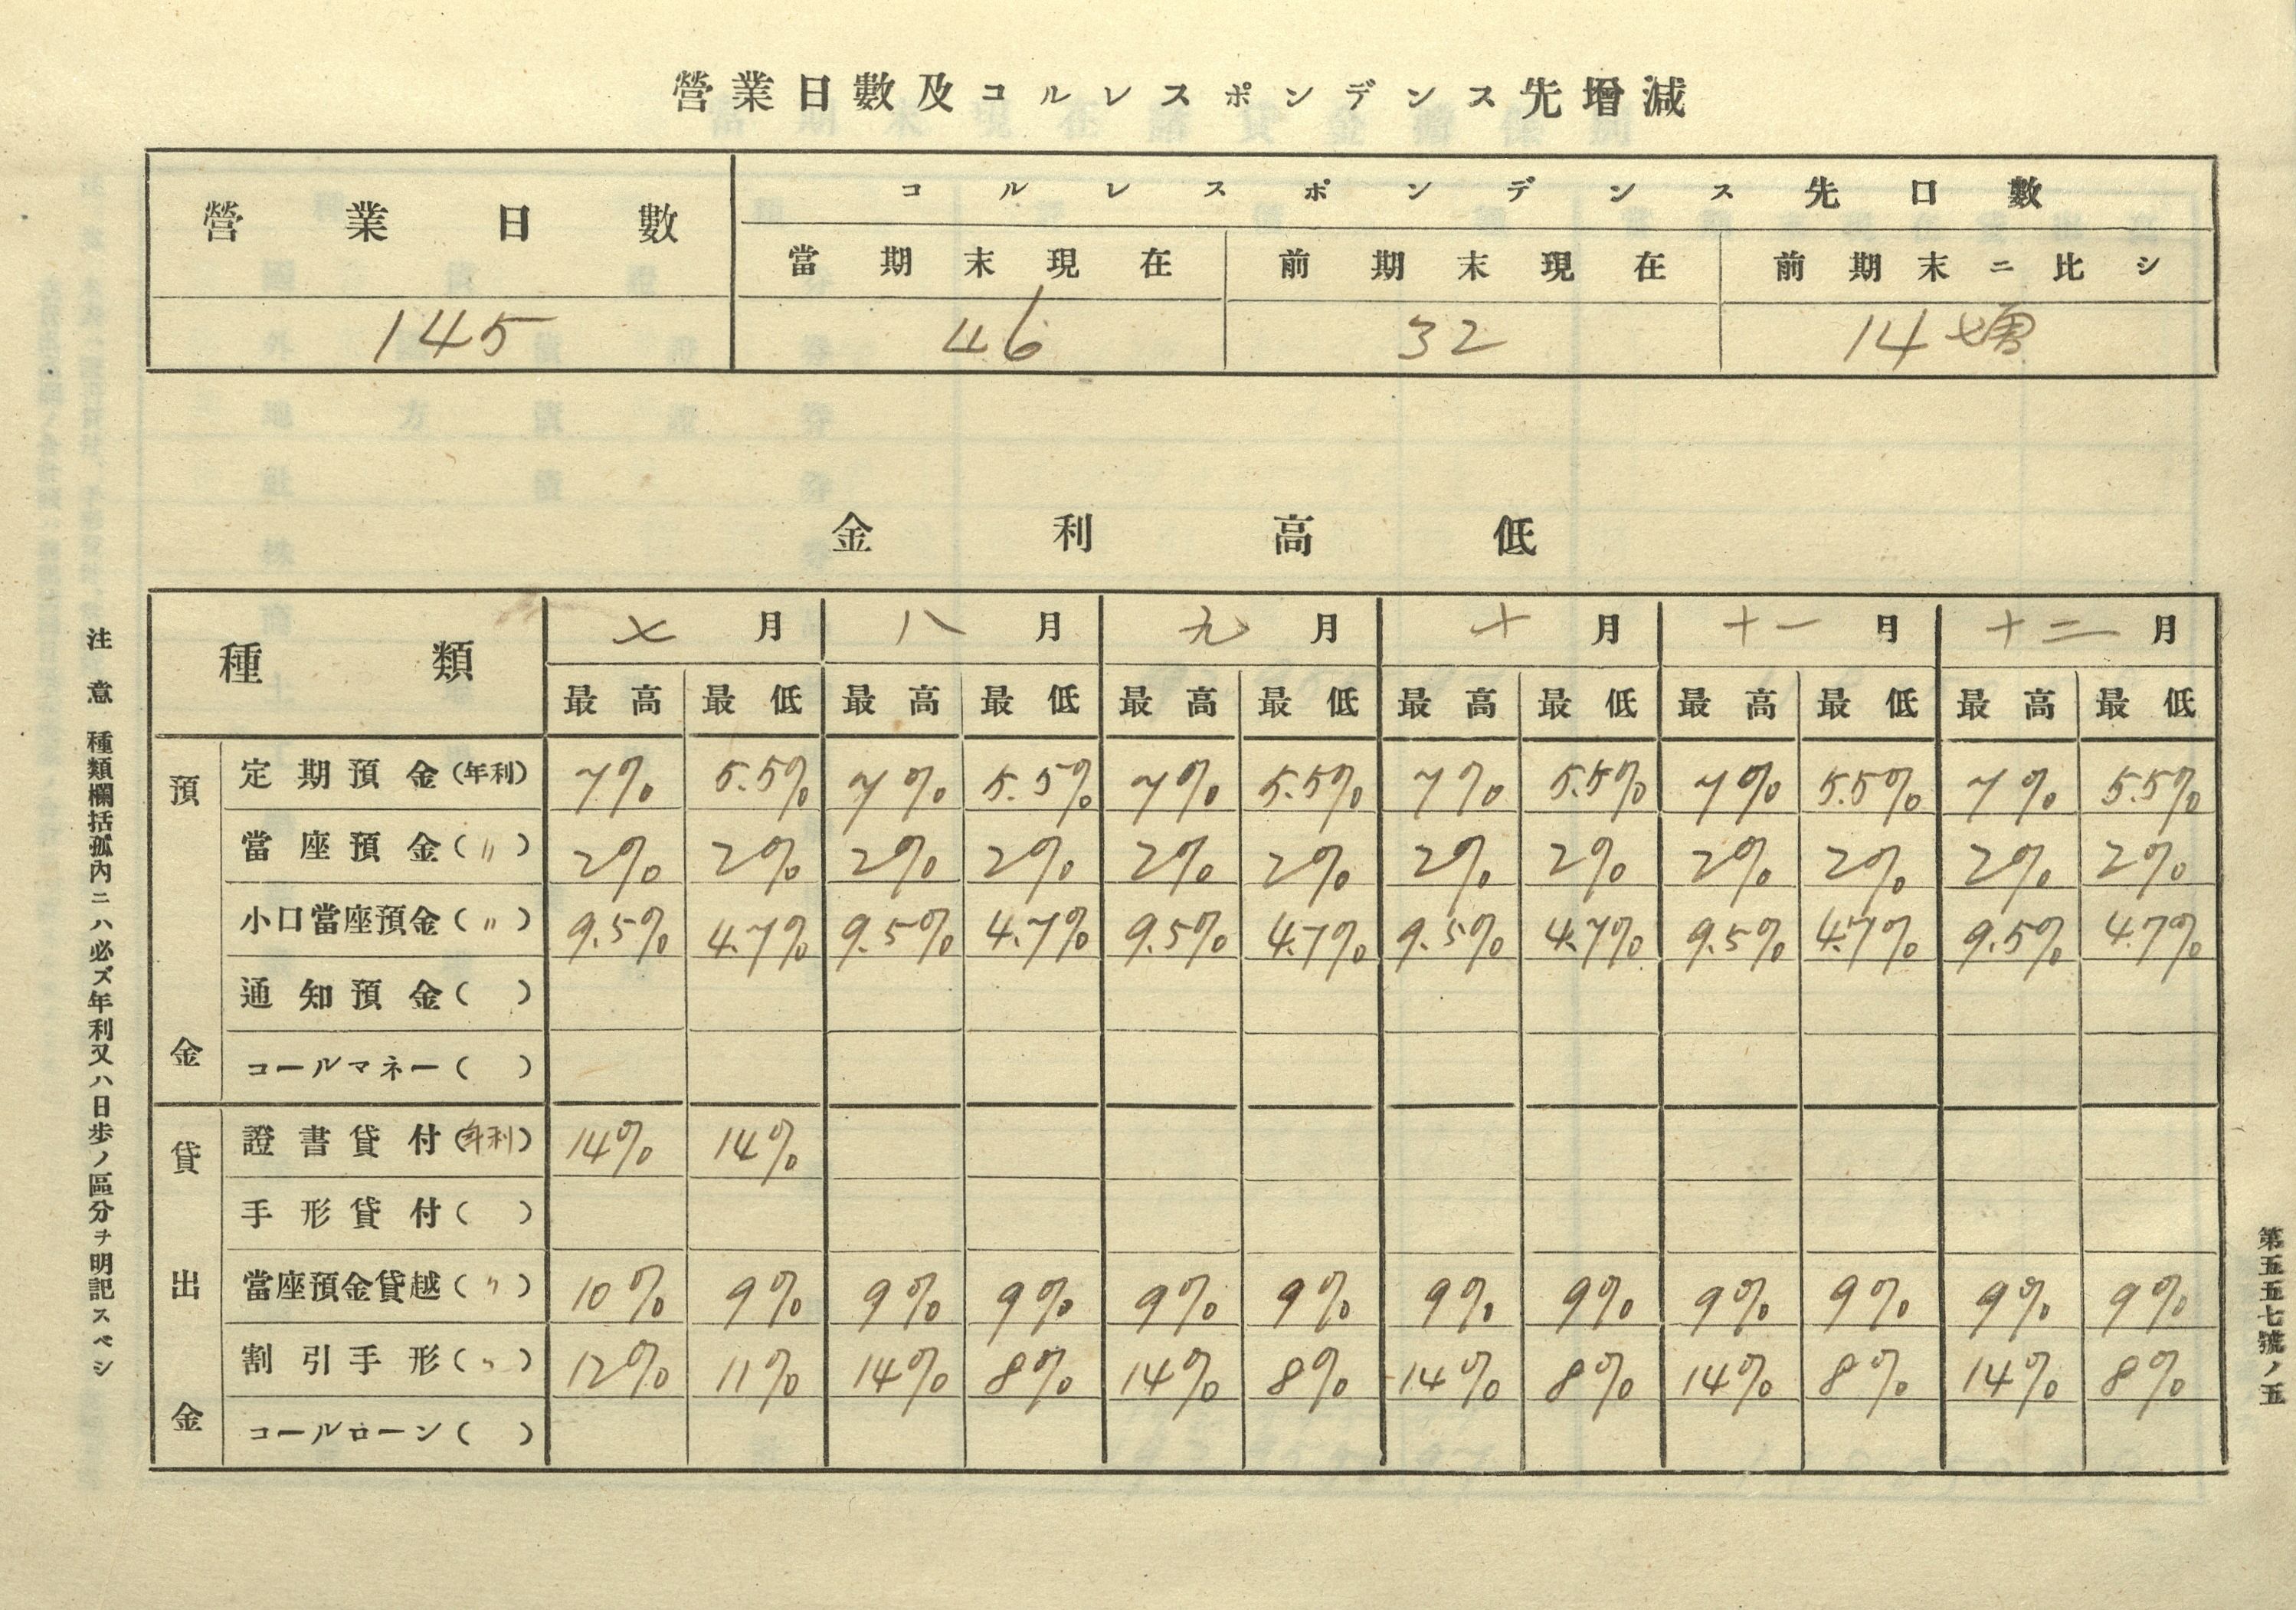 營業日數及コルレスポンデンス先增減
營業日數 コルレスポンデンス先口數
當期末現在 前期末現在 前期末ニ比シ
145 46 32 14增
金利高低
種類 七月 八月 九月 十月 十一月 十二月
最高 最低 最高 最低 最高 最低 最高 最低 最高 最低 最高 最低
預金
定期預金(年利) 7% 5.5% 7% 5.5% 7% 5.5% 7% 5.5% 7% 5.5% 7% 5.5%
當座預金(〃) 2% 2% 2% 2% 2% 2% 2% 2% 2% 2% 2% 2%
小口當座預金(〃) 9.5% 4.7% 9.5% 4.7% 9.5% 4.7% 9.5% 4.7% 9.5% 4.7% 9.5% 4.7%
通知預金( )
コールマネー( )
貸出金
證書貸付(年利) 14% 14%
手形貸付( )
當座預金貸越(〃) 10% 9% 9% 9% 9% 9% 9% 9% 9% 9% 9% 9%
割引手形(〃) 12% 11% 14% 8% 14% 8% 14% 8% 14% 8% 14% 8%
コールローン( )
注意 種類欄括孤內ニハ必ズ年利又ハ日步ノ區分ヲ明記スベシ
第五五七號ノ五